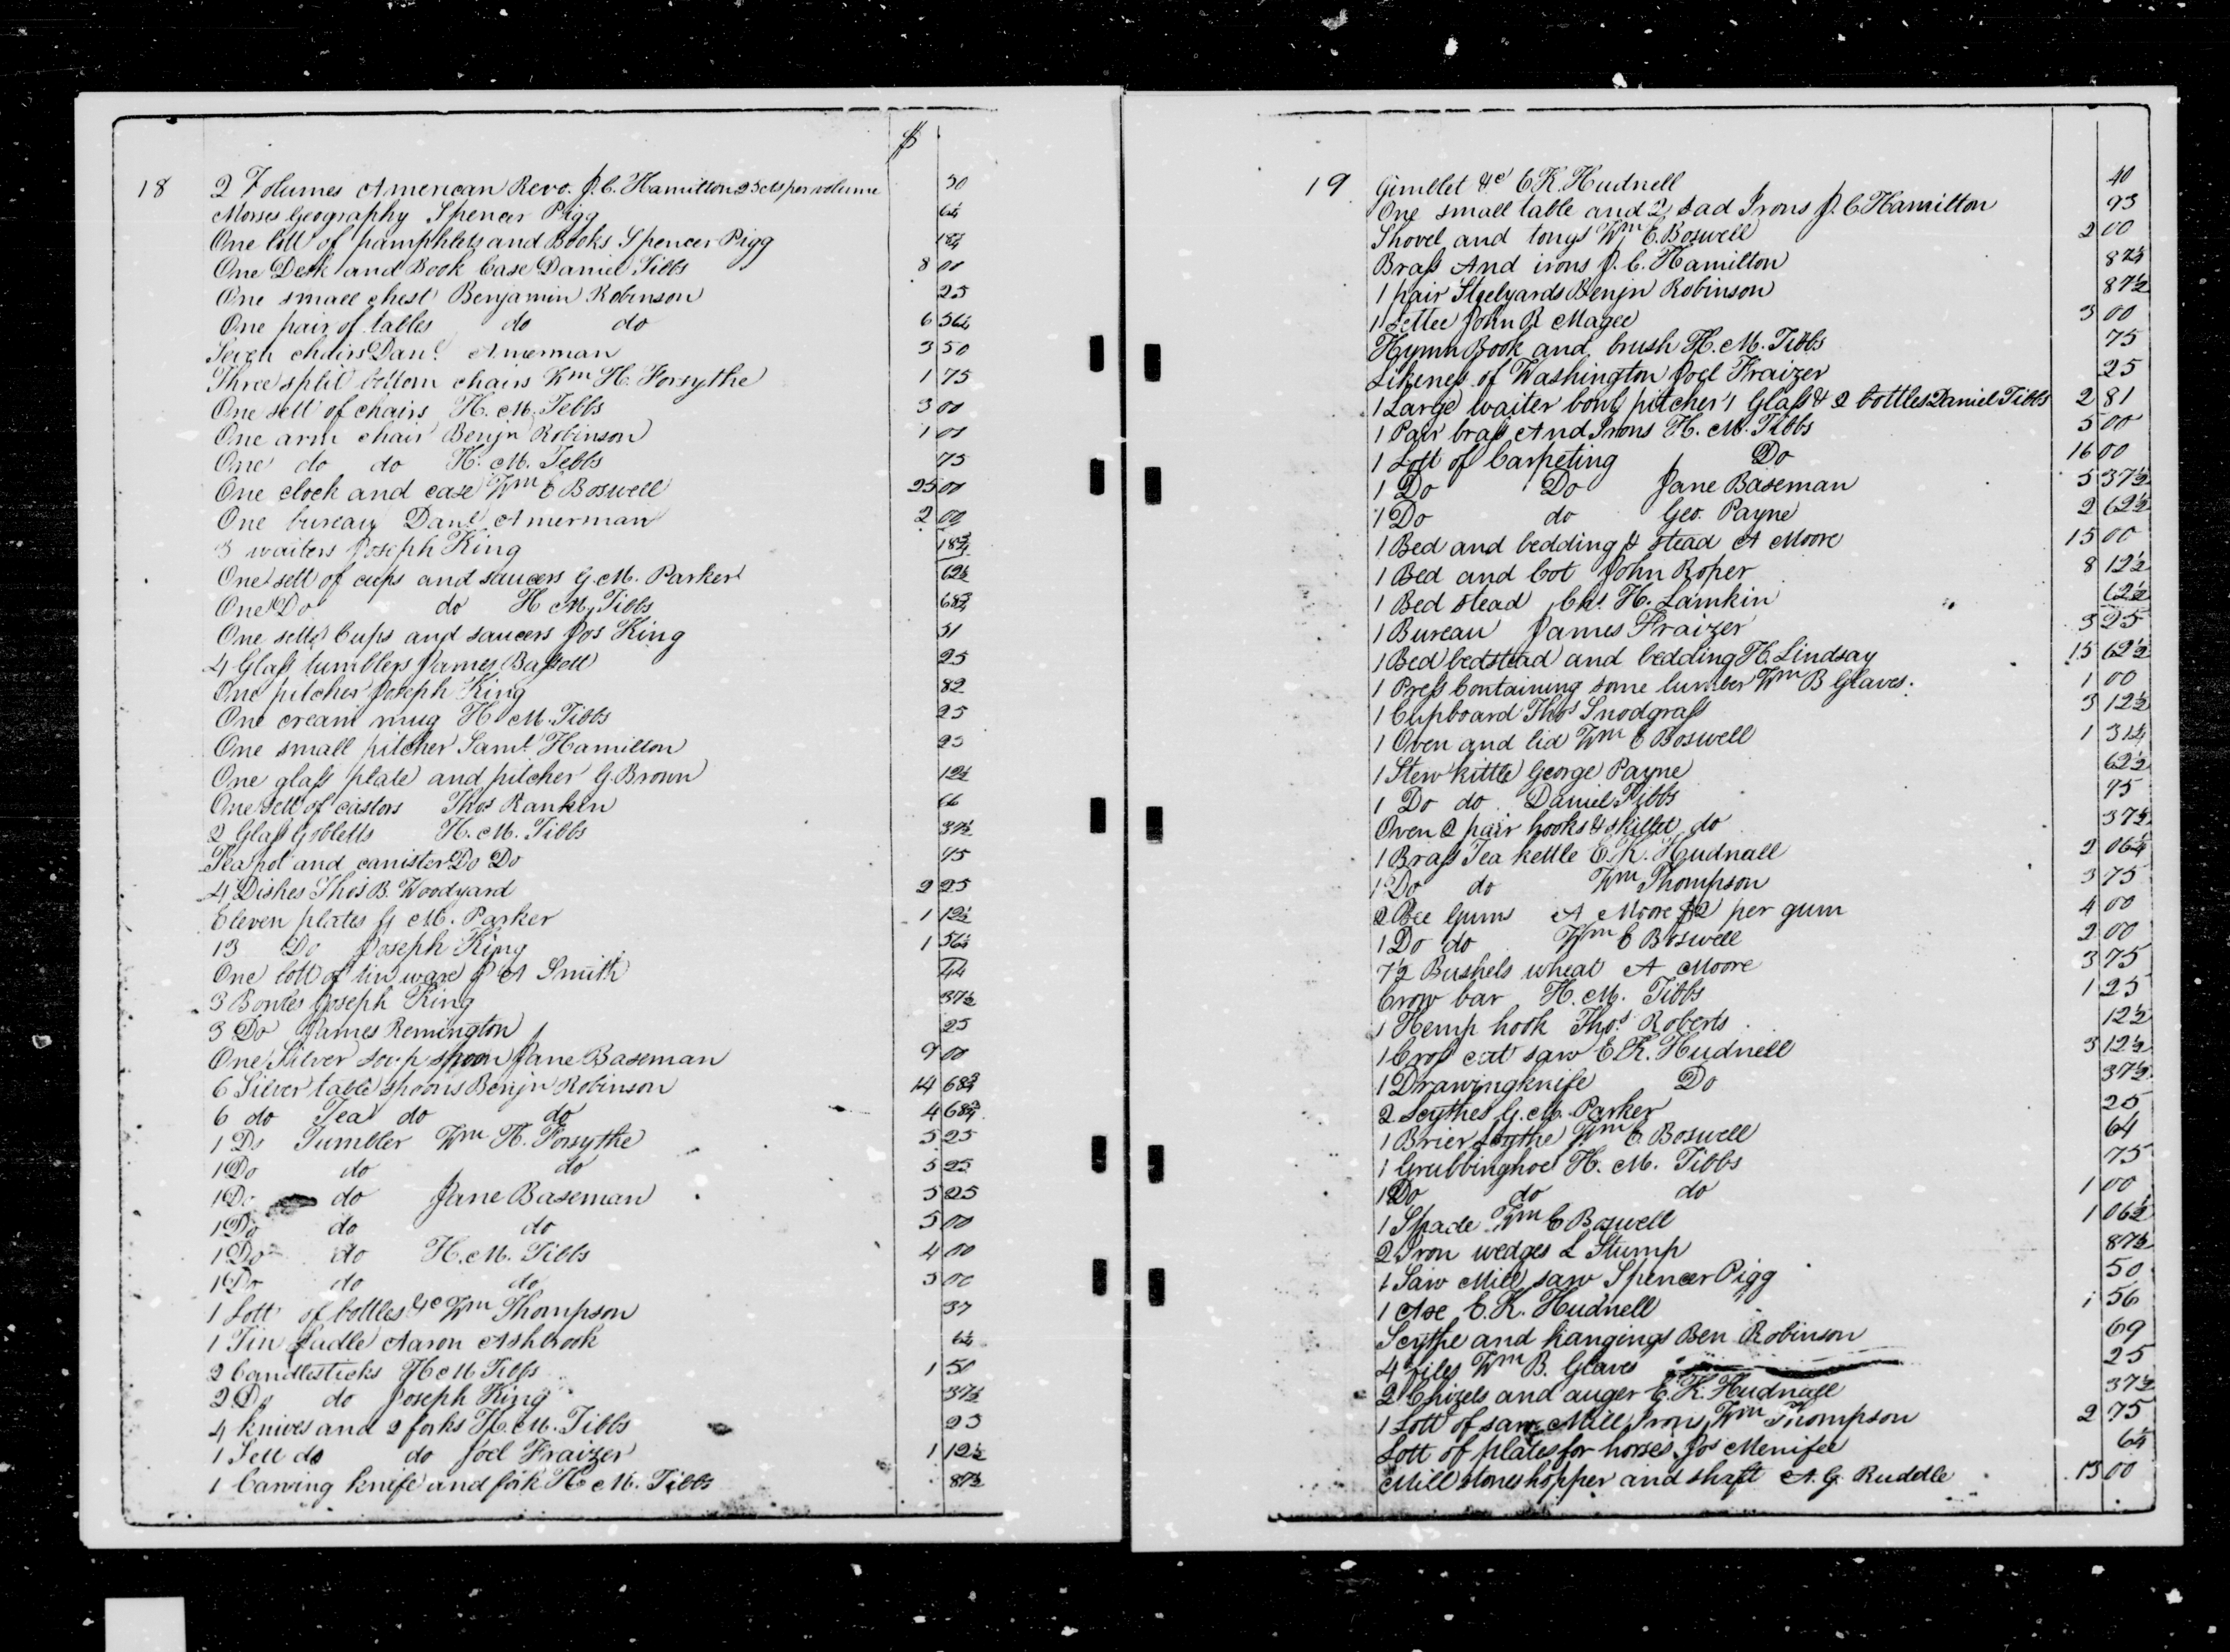 $
18 2 Volumes American Revo. J. C. Hamilton 25 cts per volume 50
Morses Geography Spencer Pigg 6¼
One lott of pamphlets and Books Spencer Pigg 18¾
One Desk and Book Case Daniel Tibbs 8 00
One small chest Benjamin Robinson 25
One pair of tables do do 6 56¼
Seven chairs Danl. Amerman 3 50
Three split bottom chairs Wm H. Forsythe 1 75
One sett of chairs H. M. Tebbs 3 00
One arm chair Benjn Robinson 1 00
One do do H. M. Tebbs 75
One clock and case Wm C Boswell 25 00
One bureau Danl Amerman 2 00
3 waiters Joseph King 18¾
One sett of cups and saucers G. M. Parker 62½
One Do do H M. Tibbs 68¾
One sett Cups and saucers Jos King 31
4 Glass tumblers James Bassett 25
One pitcher Joseph King 82
One cream mug H M. Tibbs 25
One small pitcher Saml. Hamilton 25
One glass plate and pitcher G. Brown 12½
One sett of castors Thos Rankin 66
2 Glass Gobletts H. M. Tibbs 37½
Tea pot and canister Do Do 45
4 Dishes Thos B. Woodyard 2 25
Eleven plates G M. Parker 1 12½
13 Do Joseph King 1 56¼
One lott of tin ware J A Smith 44
3 Bowles Joseph King 37½
3 Do James Remington 25
One Silver soup spoon Jane Baseman 9 00
6 Silver table spoons Benjn Robinson 14 68¾
6 do Tea do do 4 68¾
1 Do Tumbler Wm H. Forsythe 5 25
1 Do do do 5 25
1 Do do Jane Baseman 5 25
1 Do do do 5 00
1 Do do H. M. Tibbs 4 00
1 Do do do 5 00
1 Lott of bottles &c Wm Thompson 37
1 Tin Ladle Aaron Ashbrook 6¼
2 Candlesticks H M Tibbs 1 50
2 Do do Joseph King 37½
4 knives and 2 forks H. M. Tibbs 25
1 Sett do do Joel Fraizer 1 12½
1 Carving knife and fork H M. Tibbs 87½
19 Gimblet &c E K. Hudnell 40
One small table and 2 sad Irons J. C Hamilton 93
Shovel and tongs Wm C. Boswell 2 00
Brass And irons J. C. Hamilton 87½
1 pair Steelyards Benjn Robinson 87½
1 Settee John R Magee 3 00
Hymn Book and brush H. M. Tibbs 75
Likeness of Washington Joel Fraizer 25
1 Large waiter bowl pitcher 1 Glass & 2 bottles Daniel Tibbs 2 81
1 Pair brass And Irons H. M. Tibbs 5 00
1 Lott of Carpeting Do 16 00
1 Do Do Jane Baseman 5 37½
1 Do do Geo. Payne 2 62½
1 Bed and bedding & stead A Moore 15 00
1 Bed and Cot John Roper 8 12½
1 Bed stead Chs. H. Lamkin 62½
1 Bureau James Fraizer 3 25
1 Bed bedstead and bedding H. Lindsay 15 62½
1 Press Containing some lumber Wm B Glaves. 1 00
1 Cupboard Thos Snodgrass 3 12½
1 Oven and lid Wm C Boswell 1 31¼
1 Stew kittle George Payne 62½
1 Do do. Daniel Tibbs 75
Oven 2 pair hooks & skillet do 37½
1 Brass Tea kettle E. K. Hudnall 2 06¼
1 Do do Wm Thompson 3 75
2 Bee Gums A Moore $2 per gum 4 00
1 Do do Wm C Boswell 2 00
7½ Bushels wheat A Moore 3 75
Crow bar H. M. Tibbs 1 25
1 Hemp hook Thos. Roberts 12½
1 Cross cut saw E K. Hudnell 3 12½
1 Drawingknife Do 37½
2 Scythes G. M. Parker 25
1 Brier Scythe Wm C. Boswell 6¼
1 Grubbinghoe H. M. Tibbs 75
1 Do do do 1 00
1 Spade Wm C Boswell 1 06½
2 Iron wedges L Stump 87½
1 Saw Mill saw Spencer Pigg 50
1 Axe E. K. Hudnell 1 56
Scythe and hangings Ben Robinson 69
4 files Wm B. Glaves 25
2 Chizels and auger E. K. Hudnall 37½
1 Lott of saw Mill Irons Wm Thompson 2 75
Lott of plates for horses Jos Menifee 6¼
Mill stones hopper and shaft A. G. Ruddle 15 00